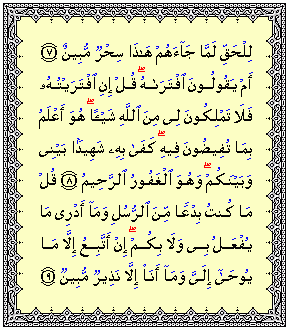 لِلْحَقِّ لَمَّا جَآءَهُمْ هَٰذَا سِحْرٌ مُّبِينٌ ٧
أَمْ يَقُولُونَ ٱفْتَرَىٰهُ ۖ قُلْ إِنِ ٱفْتَرَيْتُهُۥ
فَلَا تَمْلِكُونَ لِى مِنَ ٱللَّهِ شَيْـًٔا ۖ هُوَ أَعْلَمُ
بِمَا تُفِيضُونَ فِيهِ ۖ كَفَىٰ بِهِۦ شَهِيدًۢا بَيْنِى
وَبَيْنَكُمْ ۖ وَهُوَ ٱلْغَفُورُ ٱلرَّحِيمُ ٨ قُلْ
مَا كُنتُ بِدْعًا مِّنَ ٱلرُّسُلِ وَمَآ أَدْرِى مَا
يُفْعَلُ بِى وَلَا بِكُمْ ۖ إِنْ أَتَّبِعُ إِلَّا مَا
يُوحَىٰٓ إِلَىَّ وَمَآ أَنَا۠ إِلَّا نَذِيرٌ مُّبِينٌ ٩